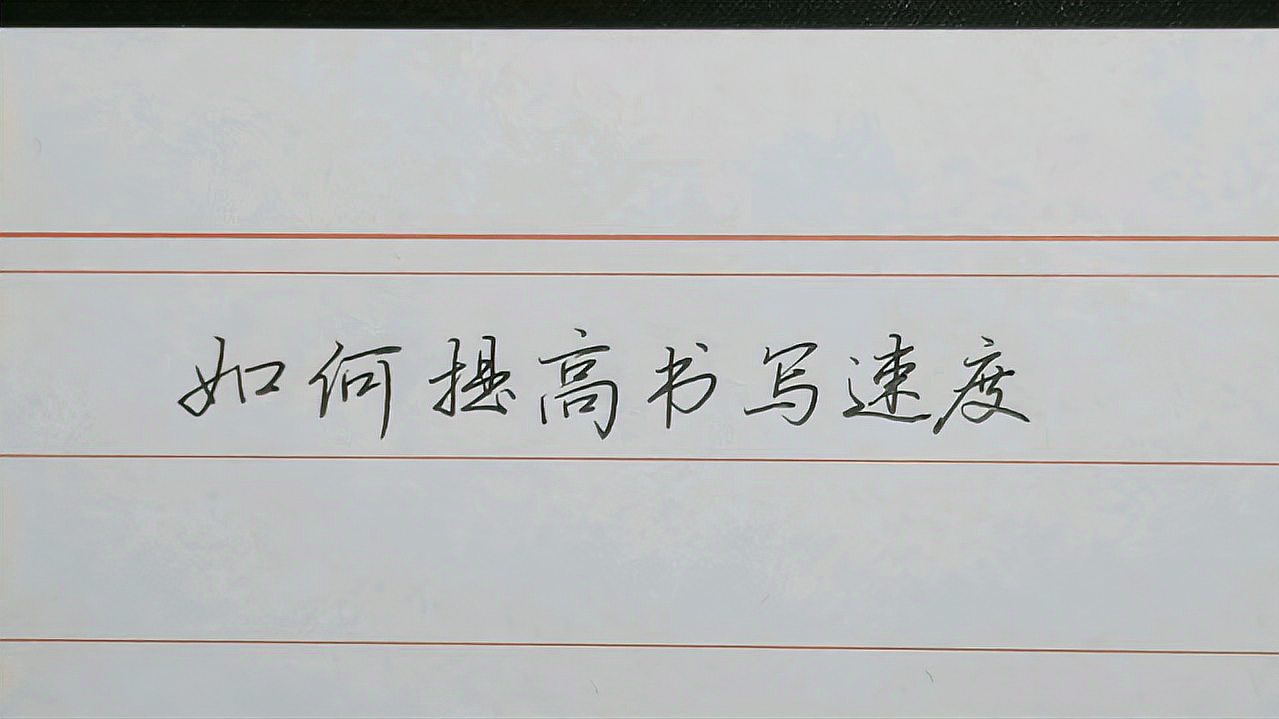 如何提高书写速度